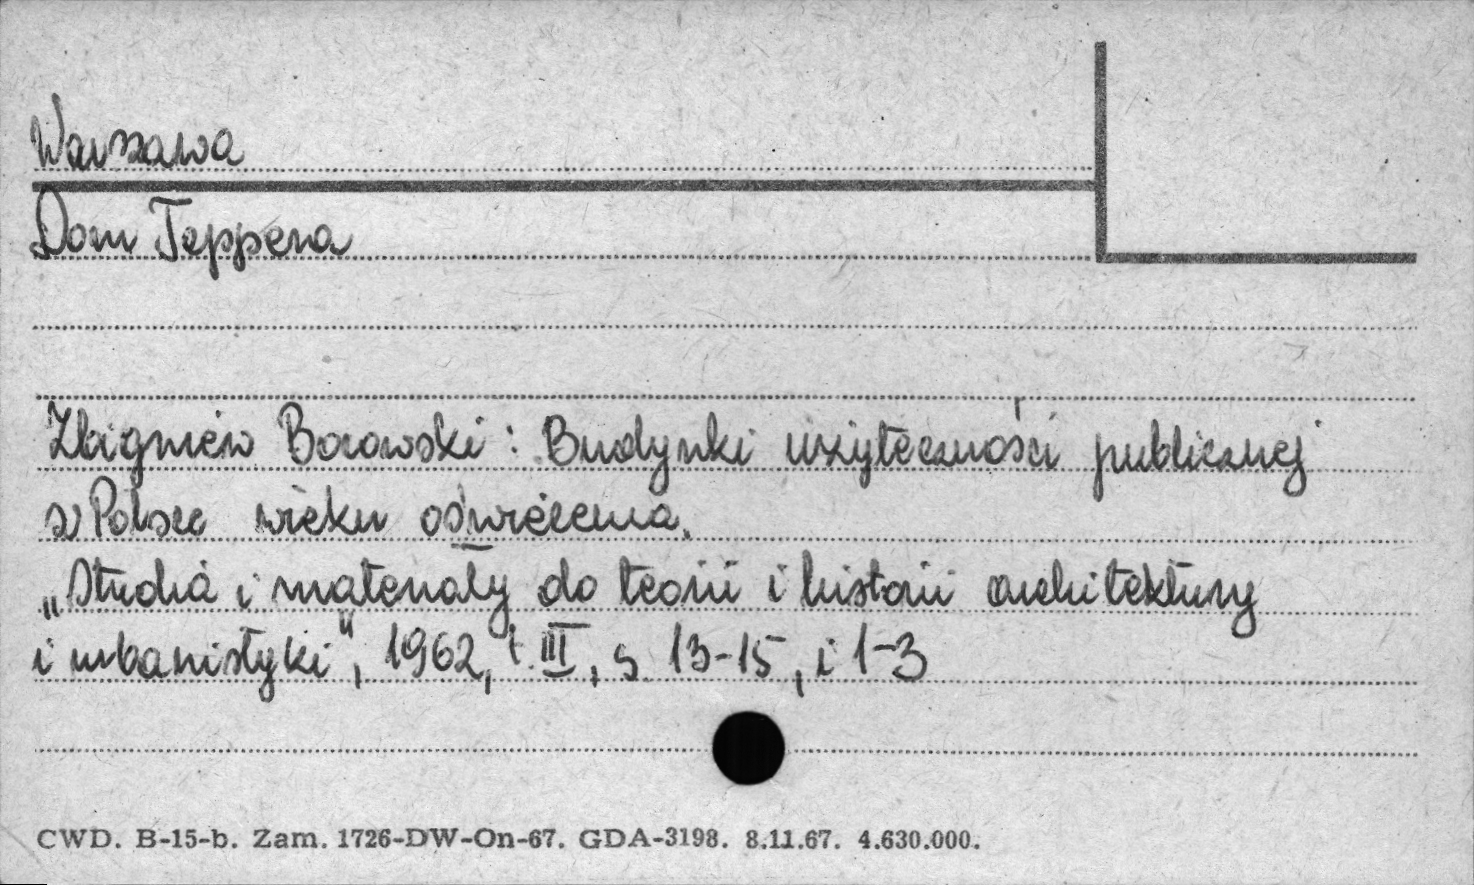 Warszawa
Dom Teppera
Zbigniew Borowski: Budynki użyteczności publicznej
w Polsce wieku oświecenia.
„Studia i materiały do teorii i historii architektury
i urbanistyki", 1962, t. III, s 13-15, i 1-3
CWD. B-15-b. Zam. 1726-DW-On-67. GDA-3198. 8.11.67. 4.630.000.